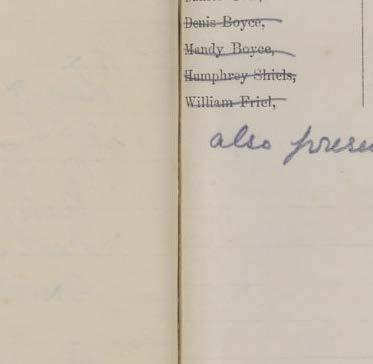 Denis Boyce,
Mandy Boyce,
Humphrey Shiels,
William Friel,
also